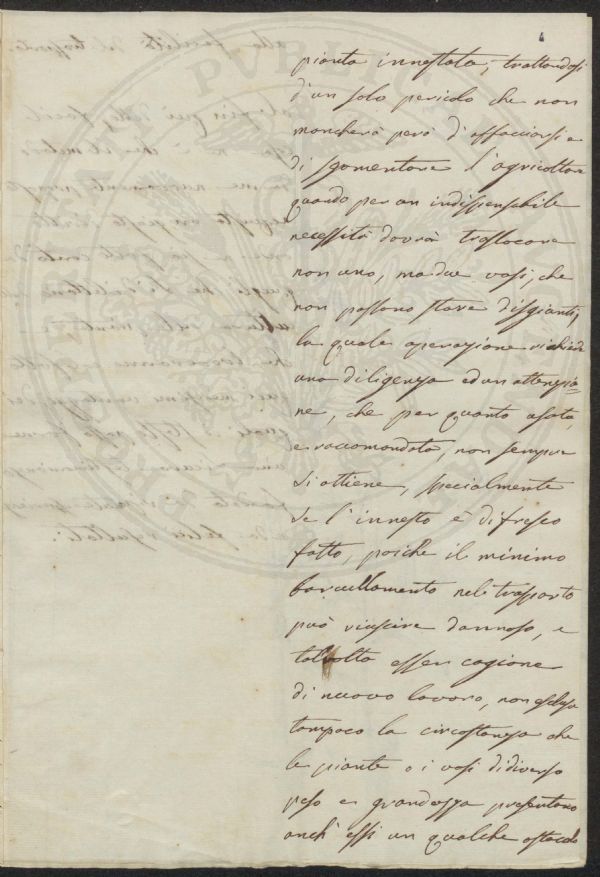 4
pianta innestata, trattandosi
d'un solo pericolo che non
mancherà però d'affacciarsi e
di sgomentare l'agricoltore
quando per un indispensabile
necessità dovrà traslocare
non uno, ma due vasi, che
non possono stare disgiunti,
la quale operazione richiede
una diligenza ed un attenzio=
ne, che per quanto usata,
e raccomandata, non sempre
si ottiene, specialmente
se l'innesto è di fresco
fatto, poiche il minimo
barcullamento nel trasporto
può riuscire dannoso, e
talvolta esser cagione
di nuovo lavoro, non esclusa
tampoco la circostanza che
le piante o i vasi di diverso
peso e grandezza presentano
anch'essi un qualche ostacolo